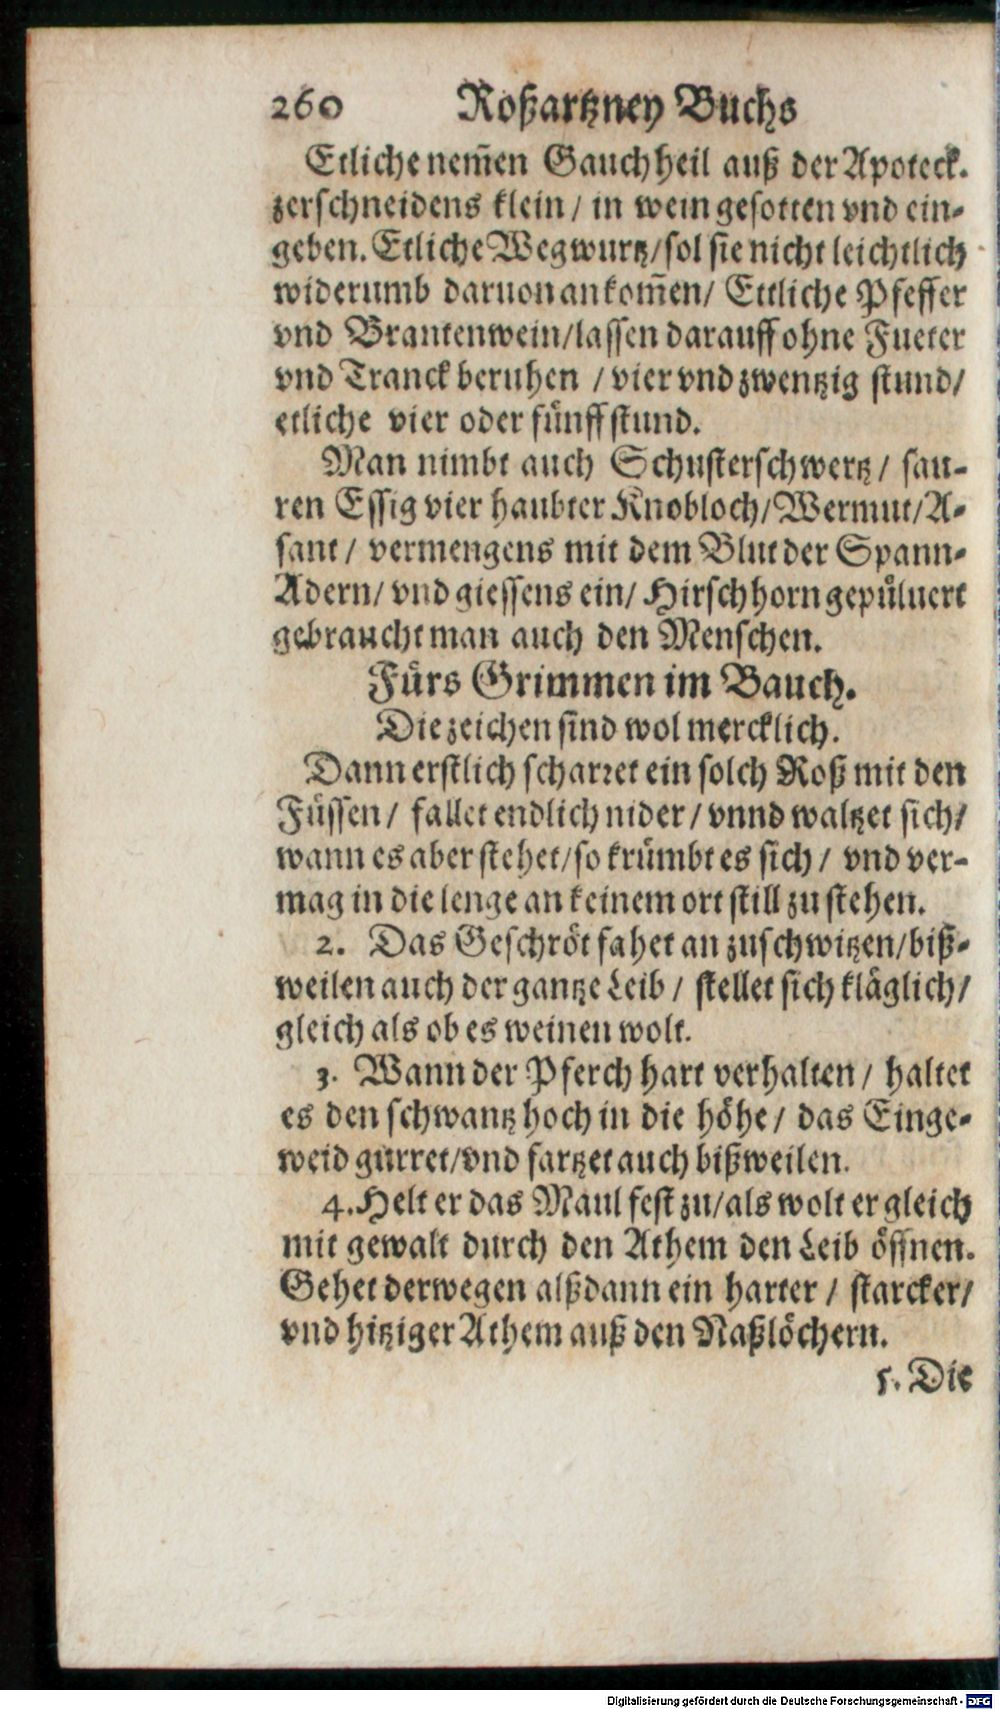 260 Roßartzney Buchs
Etliche nem̅en Gauchheil auß der Apoteck.
zerschneidens klein / in wein gesotten vnd ein-
geben. Etliche Wegwurtz/sol sie nicht leichtlich
widerumb daruon ankom̅en/ Ettliche Pfeffer
vnd Brantenwein/lassen darauff ohne Fueter
vnd Tranck beruhen / vier vnd zwentzig stund/
etliche vier oder fünff stund.
Man nimbt auch Schusterschwertz / sau-
ren Essig vier haubter Knobloch/Wermut/A-
sant / vermengens mit dem Blut der Spann-
Adern/ vnd giessens ein/ Hirschhorn gepüluert
gebraucht man auch den Menschen.
Fürs Grimmen im Bauch.
Die zeichen sind wol mercklich.
Dann erstlich scharret ein solch Roß mit den
Füssen / fallet endlich nider / vnnd waltzet sich/
wann es aber stehet/so krümbt es sich / vnd ver-
mag in die lenge an keinem ort still zu stehen.
2. Das Geschröt fahet an zuschwitzen/biß-
weilen auch der gantze Leib / stellet sich kläglich/
gleich als ob es weinen wolt.
3. Wann der Pferch hart verhalten / haltet
es den schwantz hoch in die höhe / das Einge-
weid gurret/vnd fartzet auch bißweilen.
4. Helt er das Maul fest zu/als wolt er gleich
mit gewalt durch den Athem den Leib öffnen.
Gehet derwegen alßdann ein harter / starcker/
vnd hitziger Athem auß den Naßlöchern.
5. Die
Digitalisierung gefördert durch die Deutsche Forschungsgemeinschaft - DFG